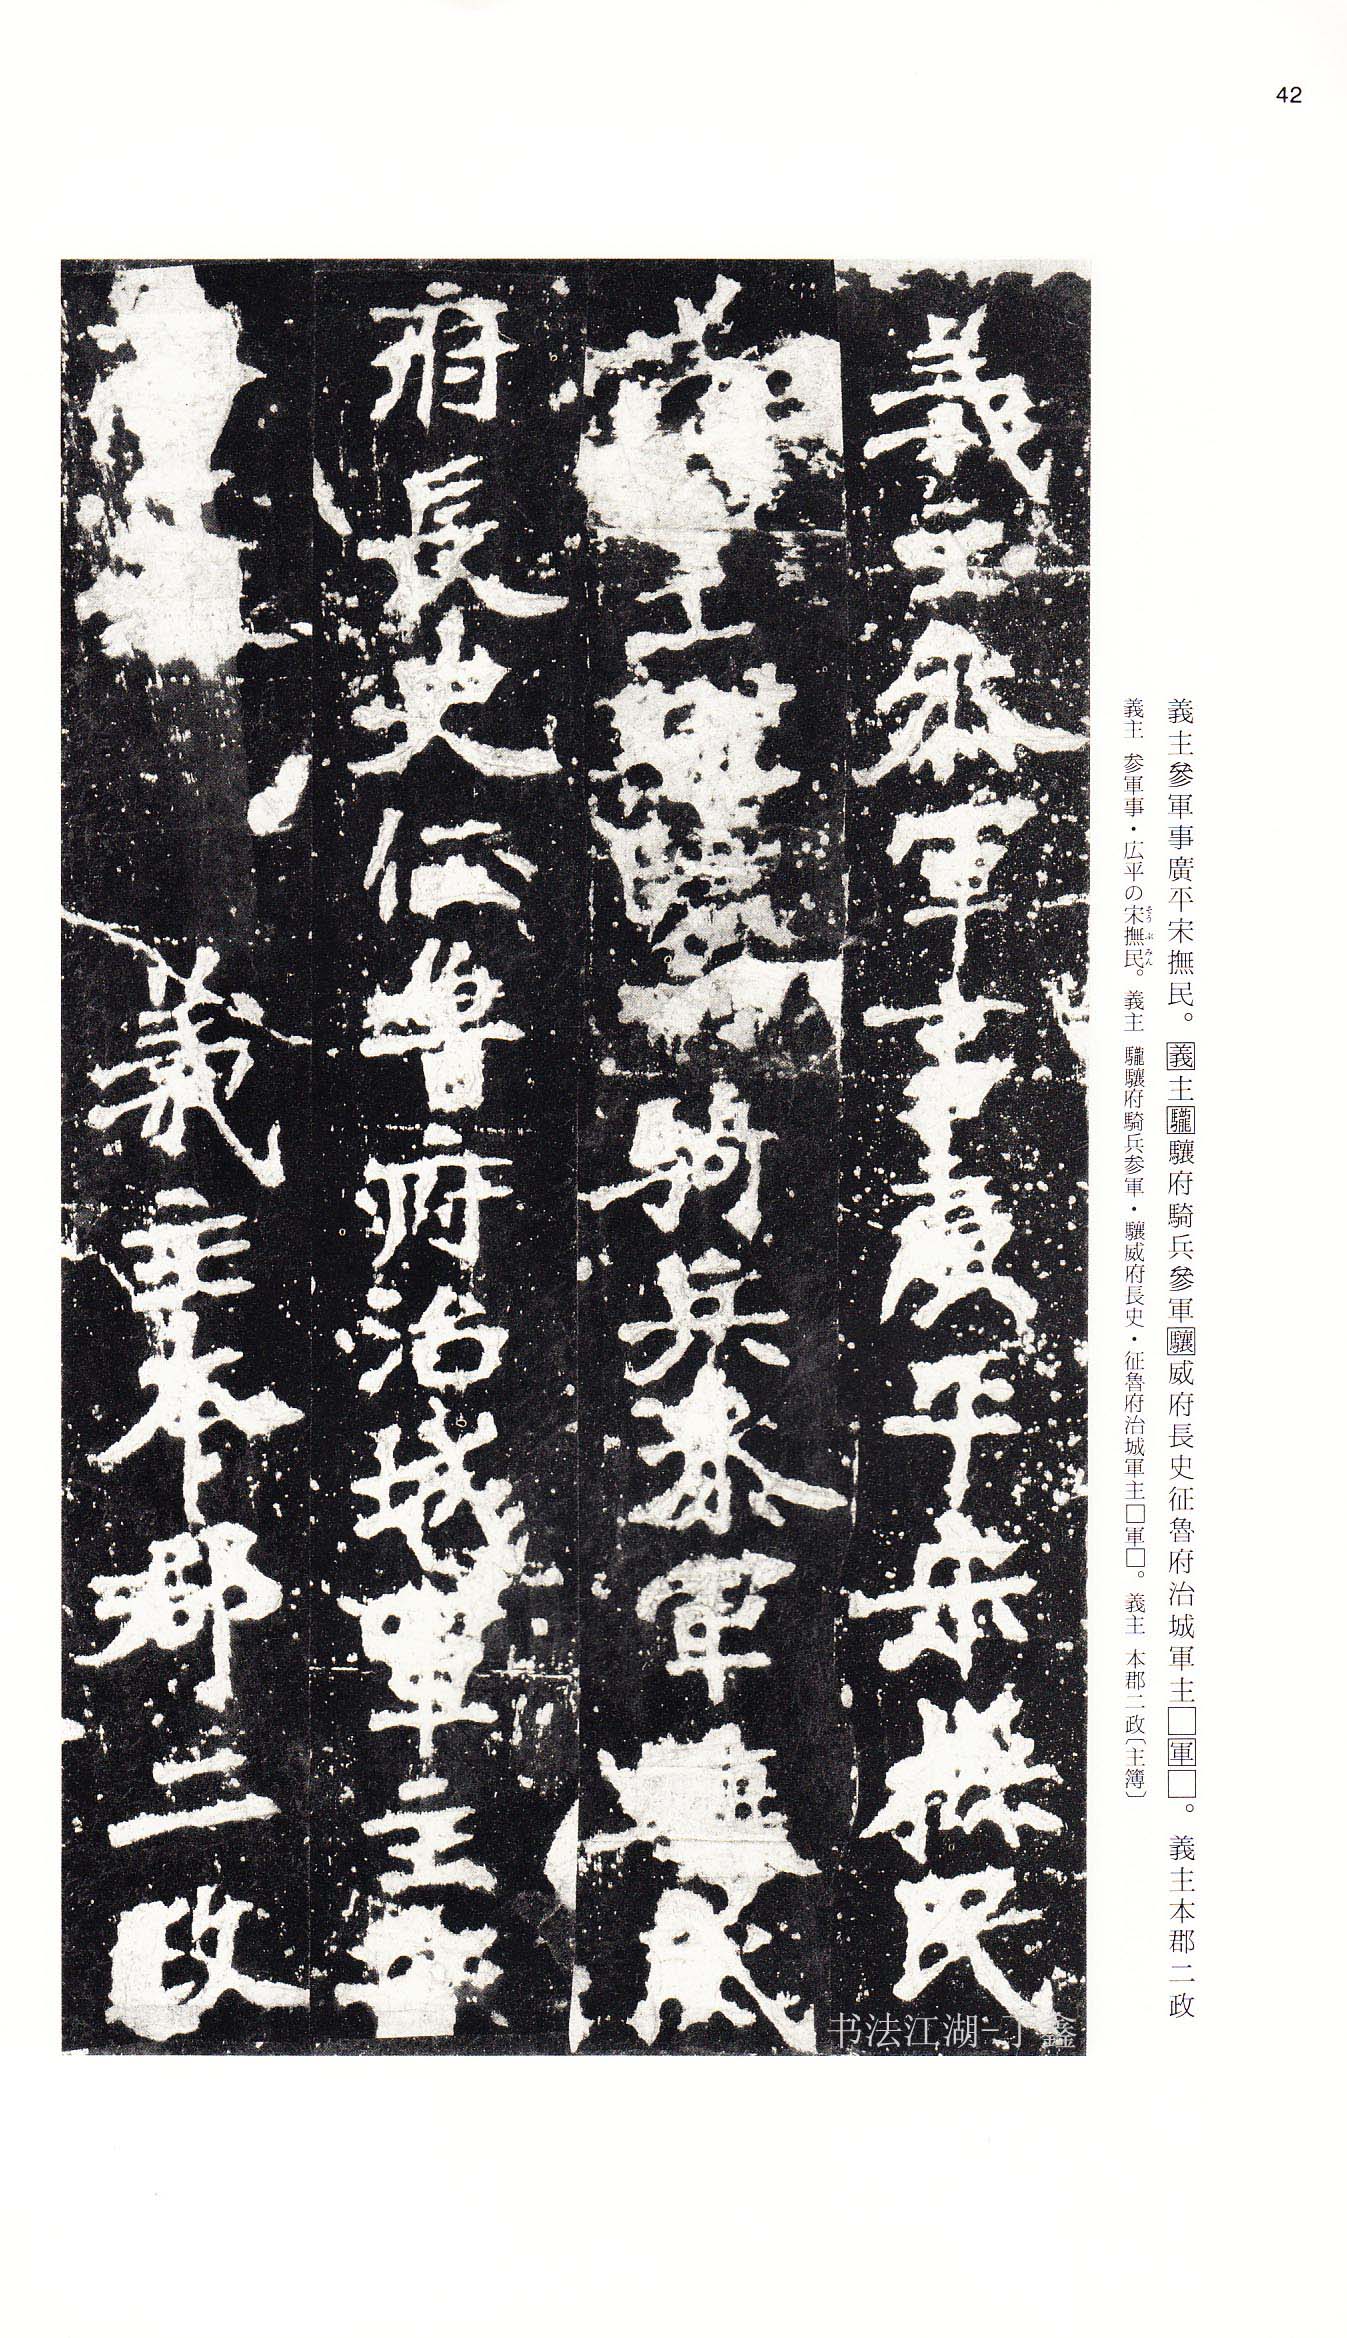 42
義主參軍事廣平宋撫民。義主驡驤府騎兵參軍驤威府長史征魯府治城軍主□軍□。義主本郡二政
義主 参軍事・広平の宋撫民。義主 驡驤府騎兵参軍・驤威府長史・征魯府治城軍主□軍□。義主 本郡二政〔主簿〕
そうぶみん
義主參軍事廣平宋撫民
義主 騎兵參軍驤威
府長史征魯府治城軍主
義主本郡二政
书法江湖-丁鑫